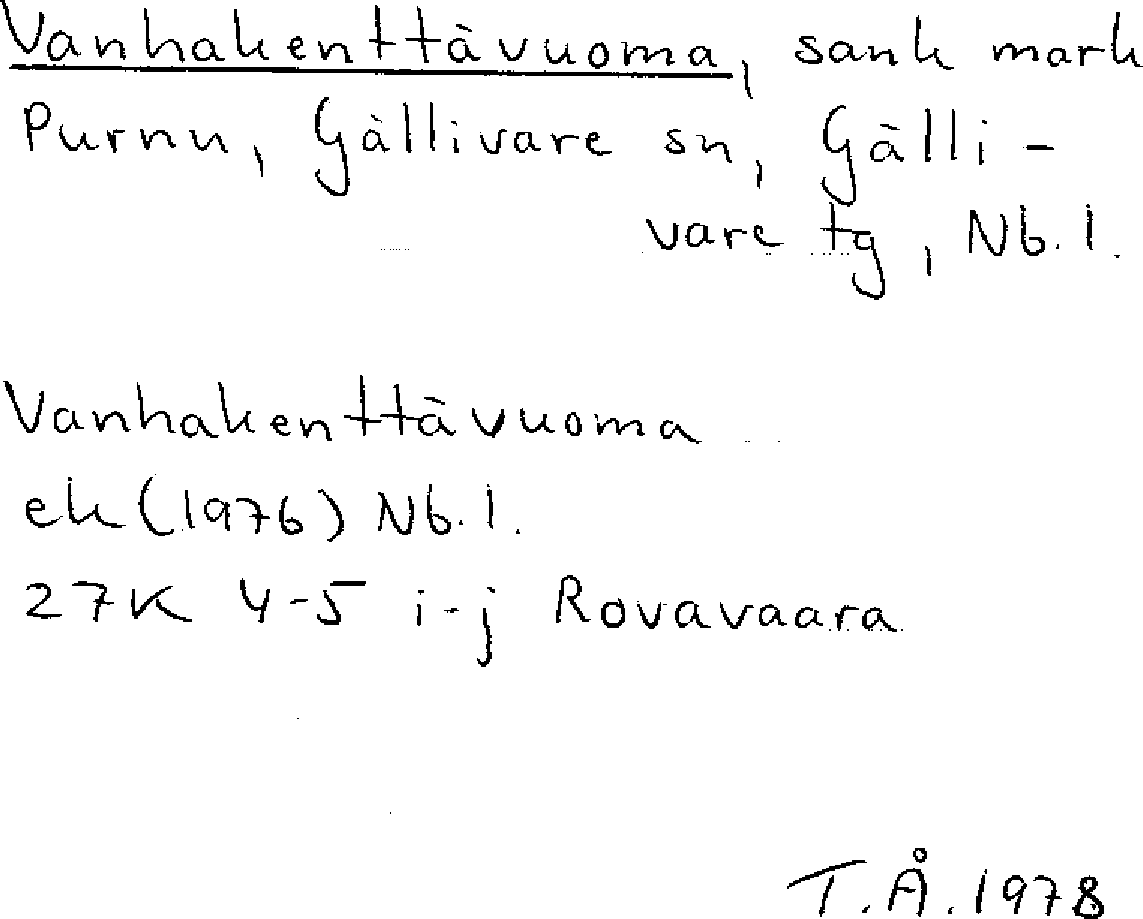 Vanhakenttävuoma, sank mark
Purnu, Gällivare sn, Gälli-
vare tg, Nb. l.
Vanhakenttävuoma
ek (1976) Nb. l.
27K 4-5 i-j Rovavaara
T.Å. 1978